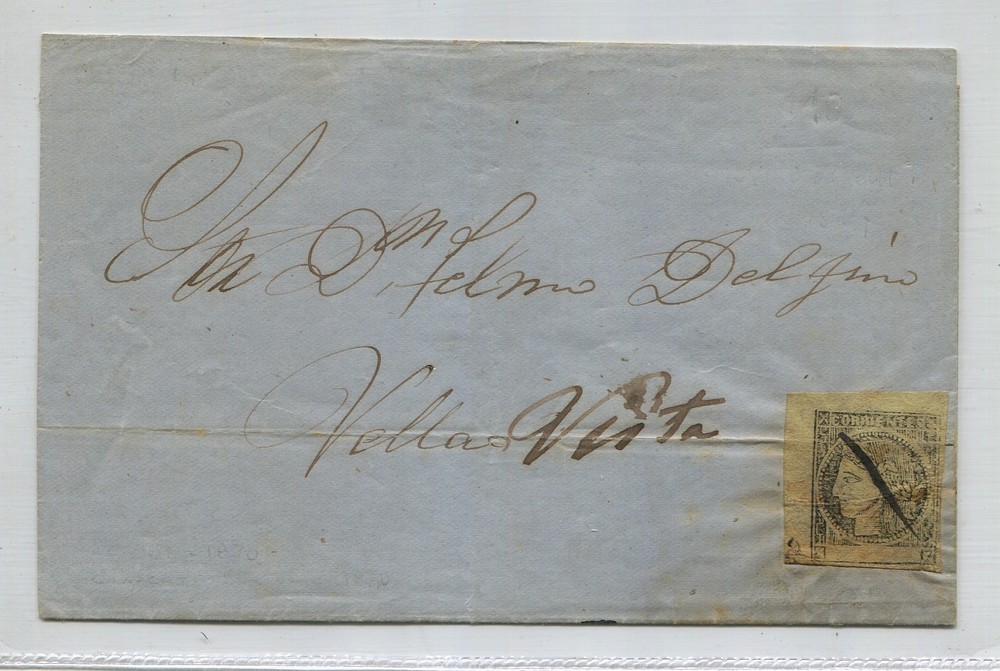 Sor Dn. Telmo Delfino
Vella Vista
CORRIENTES